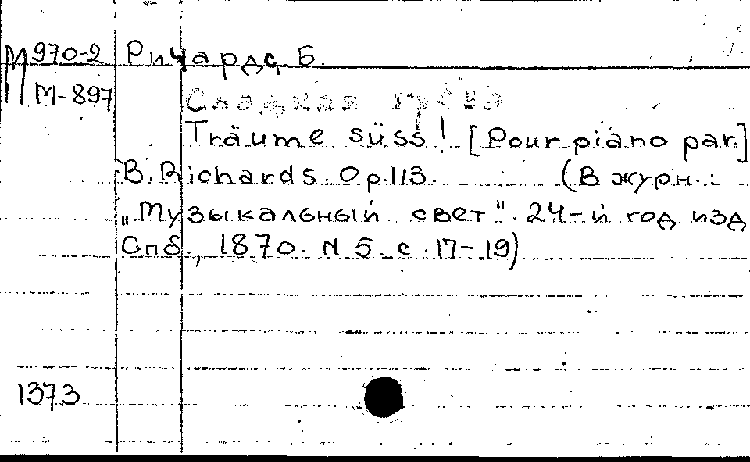 М 970-2 Ричардс, Б.
М-897 Сладкая грёза
Träume süss! [Pour piano par]
B. Richards. Op. 113. (В журн.:
„Музыкальный свет". 24-й год изд
Спб., 1870. N 5. с. 17-19)
1373